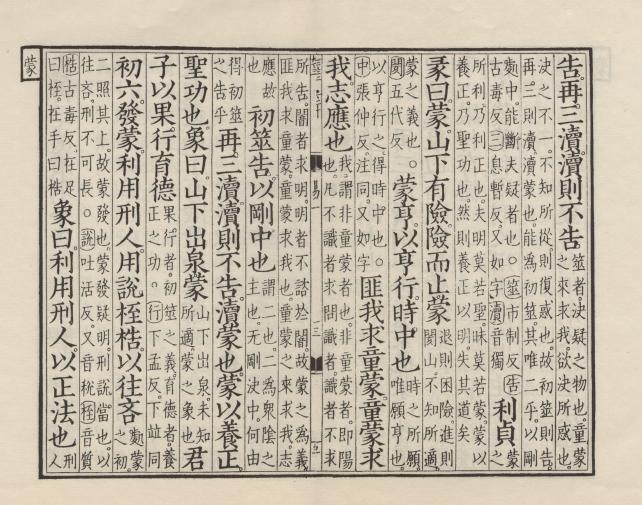 告再三瀆瀆則不告 筮者決疑之物也童蒙
之來求我欲決所惑也
決之不一不知所從則復惑也故初筮則告
再三則瀆瀆蒙也能為初筮其唯二乎以剛
處中能斷夫疑者也○筮市制反告
古毒反三息暫反又如字瀆音獨
利貞 蒙
之
所利乃利正也夫明莫若聖昧莫若蒙蒙以
養正乃聖功也然則養正以明失其道矣
彖曰蒙山下有險險而止蒙 退則困險進則
閡山不知所適
蒙之義也○
閡五代反
蒙亨以亨行時中也 時之所願
唯願亨也
以亨行之得時中也○
中張仲反注同又如字
匪我求童蒙童蒙求
我志應也 我謂非童蒙者也非童蒙者即陽
也凡不識者求問識者識者不求
易一
三
所告闇者求明明者不諮於闇故蒙之為義
匪我求童蒙童蒙求我也童蒙之來求我志
應故
也
初筮告以剛中也 謂二也二為眾陰之
主也无剛決中何由
得初筮
之告乎
再三瀆瀆則不告瀆蒙也蒙以養正
聖功也象曰山下出泉蒙 山下出泉未知
所適蒙之象也
君
子以果行育德 果行者初筮之義育德者養
正之功○行下孟反下竝同
初六發蒙利用刑人用說桎梏以往吝 處蒙
之初
二照其上故蒙發也蒙發疑明刑說當也以
往吝刑不可長○說吐活反又音稅桎音質
梏古毒反在足
曰桎在手曰梏
象曰利用刑人以正法也 刑
人
蒙